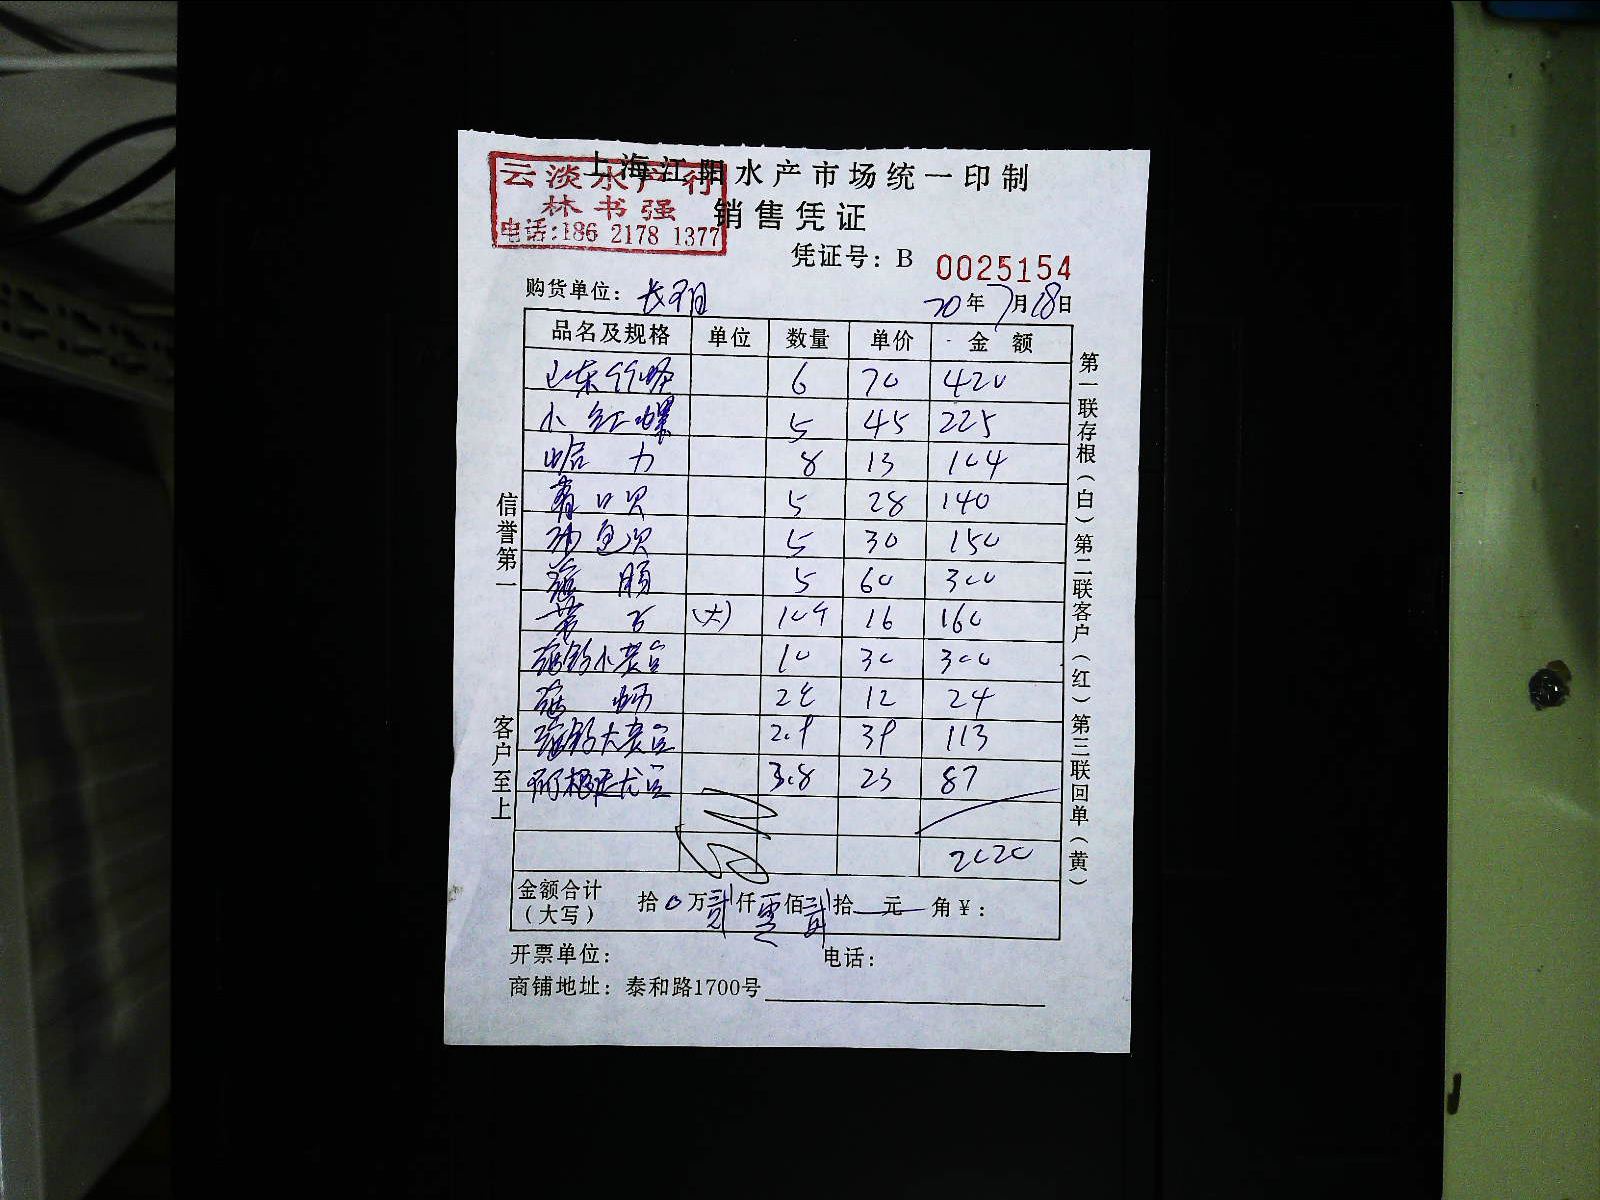 上海江阳水产市场统一印制
云淡水产行
林书强
电话:186 2178 1377
销售凭证
凭证号: B 0025154
购货单位: 长阳 20年7月18日
品名及规格 单位 数量 单价 金额
山东竹蛏 6 70 420
小红螺 5 45 225
哈力 8 13 104
青口贝 5 28 140
5 30 150
海肠 5 60 300
(大) 16 160
10 30 300
12 24
2.9 39 113
3.8 23 87
2020
金额合计(大写) 拾0万贰仟零佰贰拾 元 角¥:
开票单位: 电话:
商铺地址: 泰和路1700号
信誉第一 客户至上
第一联存根(白)第二联客户(红)第三联回单(黄)